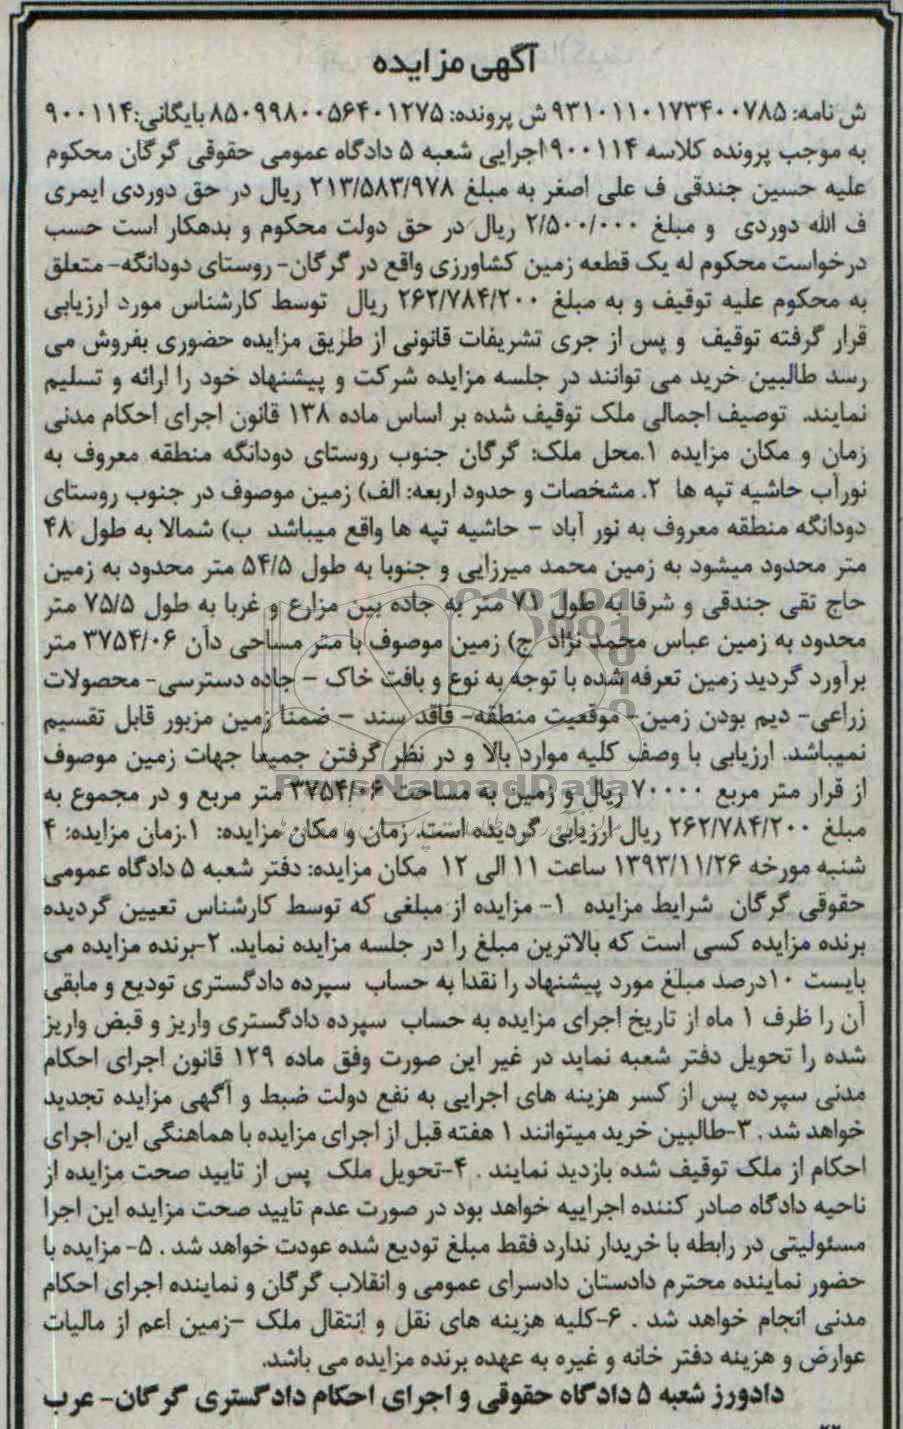 آگهی مزایده
ش نامه: ۹۳۱۰۱۱۰۱۷۳۴۰۰۷۸۵ ش پرونده: ۸۵۰۹۹۸۰۰۵۶۴۰۱۲۷۵ بایگانی: ۹۰۰۱۱۴
به موجب پرونده کلاسه ۹۰۰۱۱۴ اجرایی شعبه ۵ دادگاه عمومی حقوقی گرگان محکوم
علیه حسین جندقی ف علی اصغر به مبلغ ۲۱۳/۵۸۳/۹۷۸ ریال در حق دوردی ایمری
ف الله دوردی و مبلغ ۲/۵۰۰/۰۰۰ ریال در حق دولت محکوم و بدهکار است حسب
درخواست محکوم له یک قطعه زمین کشاورزی واقع در گرگان- روستای دودانگه- متعلق
به محکوم علیه توقیف و به مبلغ ۲۶۲/۷۸۴/۲۰۰ ریال توسط کارشناس مورد ارزیابی
قرار گرفته توقیف و پس از جری تشریفات قانونی از طریق مزایده حضوری بفروش می
رسد طالبین خرید می توانند در جلسه مزایده شرکت و پیشنهاد خود را ارائه و تسلیم
نمایند. توصیف اجمالی ملک توقیف شده بر اساس ماده ۱۳۸ قانون اجرای احکام مدنی
زمان و مکان مزایده ۱.محل ملک: گرگان جنوب روستای دودانگه منطقه معروف به
نورآب حاشیه تپه ها ۲. مشخصات و حدود اربعه: الف) زمین موصوف در جنوب روستای
دودانگه منطقه معروف به نور آباد – حاشیه تپه ها واقع میباشد ب) شمالا به طول ۴۸
متر محدود میشود به زمین محمد میرزایی و جنوبا به طول ۵۴/۵ متر محدود به زمین
حاج تقی جندقی و شرقا به طول ۷۱ متر به جاده بین مزارع و غربا به طول ۷۵/۵ متر
محدود به زمین عباس محمد نژاد ج) زمین موصوف با متر مساحی دآن ۳۷۵۴/۰۶ متر
برآورد گردید زمین تعرفه شده با توجه به نوع و بافت خاک – جاده دسترسی- محصولات
زراعی- دیم بودن زمین- موقعیت منطقه- فاقد سند – ضمنا زمین مزبور قابل تقسیم
نمیباشد. ارزیابی با وصف کلیه موارد بالا و در نظر گرفتن جمیعا جهات زمین موصوف
از قرار متر مربع ۷۰۰۰۰ ریال و زمین به مساحت ۳۷۵۴/۰۶ متر مربع و در مجموع به
مبلغ ۲۶۲/۷۸۴/۲۰۰ ریال ارزیابی گردیده است. زمان و مکان مزایده: ۱.زمان مزایده: ۴
شنبه مورخه ۱۳۹۳/۱۱/۲۶ ساعت ۱۱ الی ۱۲ مکان مزایده: دفتر شعبه ۵ دادگاه عمومی
حقوقی گرگان شرایط مزایده ۱- مزایده از مبلغی که توسط کارشناس تعیین گردیده
برنده مزایده کسی است که بالاترین مبلغ را در جلسه مزایده نماید. ۲-برنده مزایده می
بایست ۱۰درصد مبلغ مورد پیشنهاد را نقدا به حساب سپرده دادگستری تودیع و مابقی
آن را ظرف ۱ ماه از تاریخ اجرای مزایده به حساب سپرده دادگستری واریز و قبض واریز
شده را تحویل دفتر شعبه نماید در غیر این صورت وفق ماده ۱۲۹ قانون اجرای احکام
مدنی سپرده پس از کسر هزینه های اجرایی به نفع دولت ضبط و آگهی مزایده تجدید
خواهد شد . ۳-طالبین خرید میتوانند ۱ هفته قبل از اجرای مزایده با هماهنگی این اجرای
احکام از ملک توقیف شده بازدید نمایند . ۴-تحویل ملک پس از تایید صحت مزایده از
ناحیه دادگاه صادر کننده اجراییه خواهد بود در صورت عدم تایید صحت مزایده این اجرا
مسئولیتی در رابطه با خریدار ندارد فقط مبلغ تودیع شده عودت خواهد شد . ۵- مزایده با
حضور نماینده محترم دادستان دادسرای عمومی و انقلاب گرگان و نماینده اجرای احکام
مدنی انجام خواهد شد . ۶-کلیه هزینه های نقل و انتقال ملک –زمین اعم از مالیات
عوارض و هزینه دفتر خانه و غیره به عهده برنده مزایده می باشد.
دادورز شعبه ۵ دادگاه حقوقی و اجرای احکام دادگستری گرگان- عرب
ParsNamadData